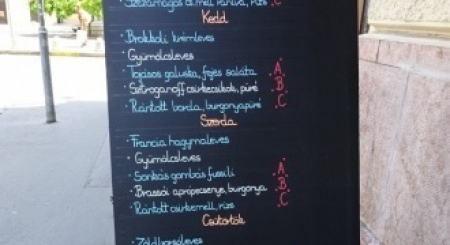 Szezámagos cs.mell rántva, rizs C
Kedd
• Brokkoli krémleves
• Gyümölcsleves
• Tojásos galuska, fejes saláta A
• Sztroganoff csirkecsíkok, püré B
• Rántott borda, burgonyapüré C
Szerda
• Francia hagymaleves
• Gyümölcsleves
• Sonkás gombás fussili A
• Brassói aprópecsenye, burgonya B
• Rántott csirkemell, rizs C
Csütörtök
• Zöldborsóleves